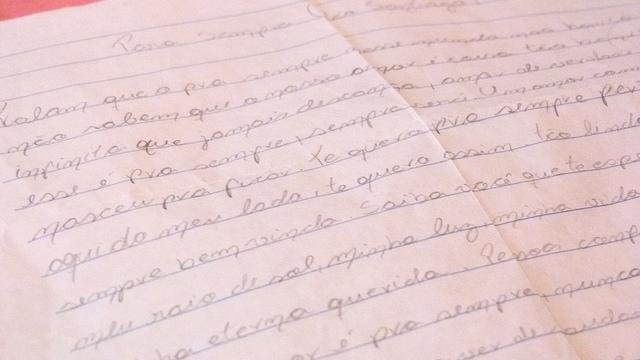 Para sempre
Falam que o pra sempre nesse mundo não
não sabem que o nosso amor é coisa tão
infinito que jamais descansa, amor de verdade
esse é pra sempre, sempre Um amor como
nasceu pra ficar. Te quero pra sempre
aqui do meu lado, te quero assim. tão linda
sempre bem vinda. Saiba você que te
meu raio de sol, minha luz, minha vida
eterna querida.
é pra sempre, nunca